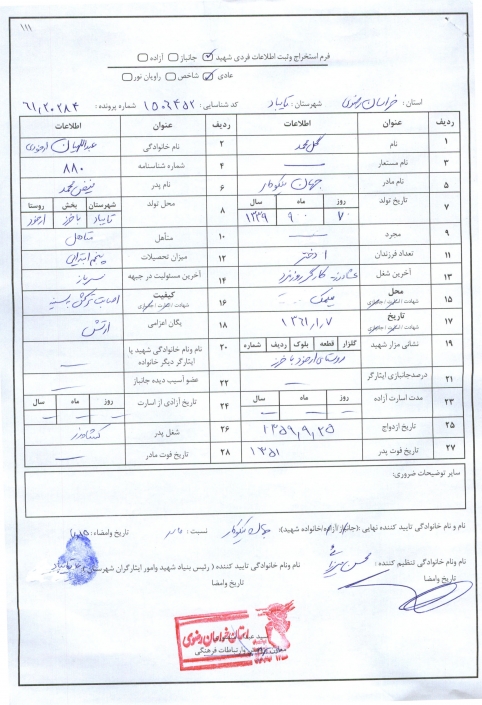 ۱۱۱
فرم استخراج وثبت اطلاعات فردی شهید ☑ جانباز ☐ آزاده ☐
عادی ☑ شاخص ☐ راویان نور ☐
استان: خراسان رضوی شهرستان: تایباد کد شناسایی: ۱۵۰۶۴۵۲ شماره پرونده: ۶۱,۲۰۲۸۴
ردیف عنوان اطلاعات ردیف عنوان اطلاعات
۱ نام گل محمد ۲ نام خانوادگی
۳ نام مستعار — ۴ شماره شناسنامه ۸۸۰
۵ نام مادر جهان نیکوکار ۶ نام پدر فیض محمد
۷ تاریخ تولد روز ماه سال ۸ محل تولد شهرستان بخش روستا
۷۰ ۹۰۰ ۱۳۳۹ تایباد باخرز ارخود
۹ مجرد — ۱۰ متأهل متاهل
۱۱ تعداد فرزندان ۱ دختر ۱۲ میزان تحصیلات پنجم ابتدایی
۱۳ آخرین شغل کارگر روزمزد ۱۴ آخرین مسئولیت در جبهه سرباز
۱۵ محل شهادت / اسارت / جانبازی ۱۶ کیفیت شهادت / اسارت / جانبازی اصابت ترکش به سینه
۱۷ تاریخ شهادت / اسارت / جانبازی ۱۳۶۱,۱,۷ ۱۸ یگان اعزامی ارتش
۱۹ نشانی مزار شهید گلزار قطعه بلوک ردیف شماره ۲۰ نام ونام خانوادگی شهید یا ایثارگر دیگر خانواده —
روستای ارخود باخرز
۲۱ درصدجانبازی ایثارگر ۲۲ عضو آسیب دیده جانباز —
۲۳ مدت اسارت آزاده روز ماه سال ۲۴ تاریخ آزادی از اسارت روز ماه سال
۲۵ تاریخ ازدواج ۱۳۵۹,۹,۲۵ ۲۶ شغل پدر کشاورز
۲۷ تاریخ فوت پدر ۱۳۵۱ ۲۸ تاریخ فوت مادر —
سایر توضیحات ضروری:
نام و نام خانوادگی تایید کننده نهایی :(جانباز/آزاده/خانواده شهید): جهان نیکوکار نسبت: مادر تاریخ وامضاء:
نام ونام خانوادگی تنظیم کننده : نام ونام خانوادگی تایید کننده ( رئیس بنیاد شهید وامور ایثارگران شهرستان
تاریخ وامضا تاریخ وامضا
استان خراسان رضوی